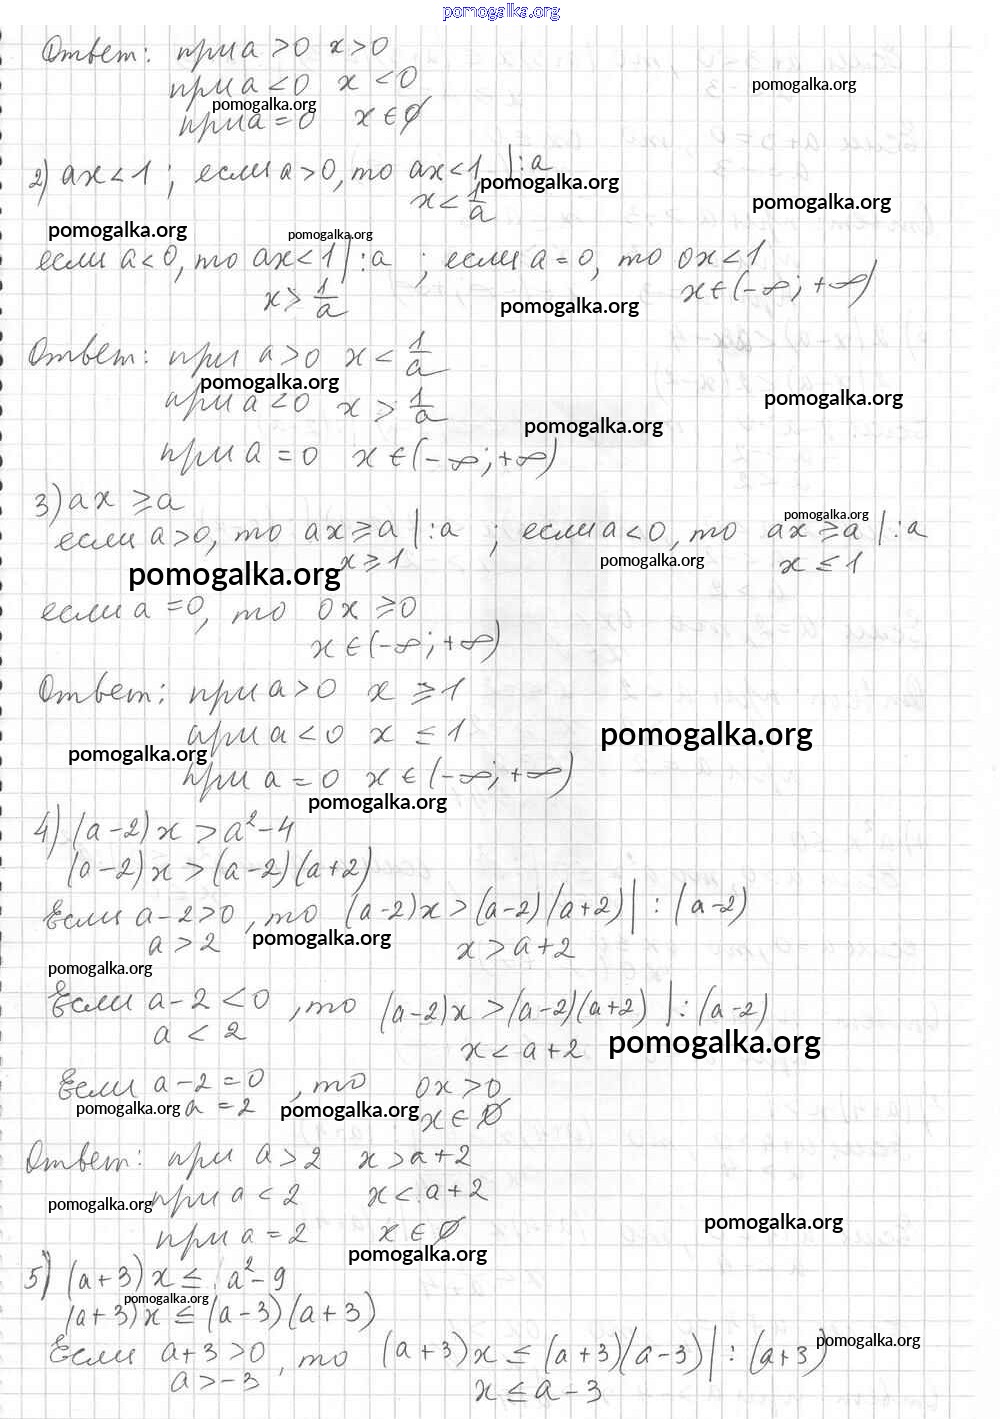 pomogalka.org
Ответ: при a > 0 x > 0
при a < 0 x < 0
pomogalka.org
pomogalka.org
при a = 0 x ∈ ∅
2) ax < 1 ; если a > 0, то ax < 1 | : a
pomogalka.org
x < 1/a
pomogalka.org
pomogalka.org
pomogalka.org
если a < 0, то ax < 1 | : a ; если a = 0, то 0x < 1
x > 1/a x ∈ (-∞; +∞)
pomogalka.org
Ответ: при a > 0 x < 1/a
pomogalka.org
при a < 0 x > 1/a
pomogalka.org
pomogalka.org
при a = 0 x ∈ (-∞; +∞)
3) ax ⩾ a
pomogalka.org
если a > 0, то ax ⩾ a | : a ; если a < 0, то ax ⩾ a | : a
x ⩾ 1 x ≤ 1
pomogalka.org
pomogalka.org
если a = 0, то 0x ⩾ 0
x ∈ (-∞; +∞)
Ответ: при a > 0 x ⩾ 1
при a < 0 x ≤ 1
pomogalka.org
pomogalka.org
при a = 0 x ∈ (-∞; +∞)
pomogalka.org
4) (a-2)x > a²-4
(a-2)x > (a-2)(a+2)
Если a-2 > 0, то (a-2)x > (a-2)(a+2) | : (a-2)
a > 2 x > a+2
pomogalka.org
pomogalka.org
Если a-2 < 0, то (a-2)x > (a-2)(a+2) | : (a-2)
a < 2 x < a+2
pomogalka.org
Если a-2 = 0, то 0x > 0
a = 2 x ∈ ∅
pomogalka.org
pomogalka.org
Ответ: при a > 2 x > a+2
при a < 2 x < a+2
pomogalka.org
pomogalka.org
при a = 2 x ∈ ∅
pomogalka.org
5) (a+3)x ≤ a²-9
pomogalka.org
(a+3)x ≤ (a-3)(a+3)
Если a+3 > 0, то (a+3)x ≤ (a+3)(a-3) | : (a+3)
pomogalka.org
a > -3 x ≤ a-3